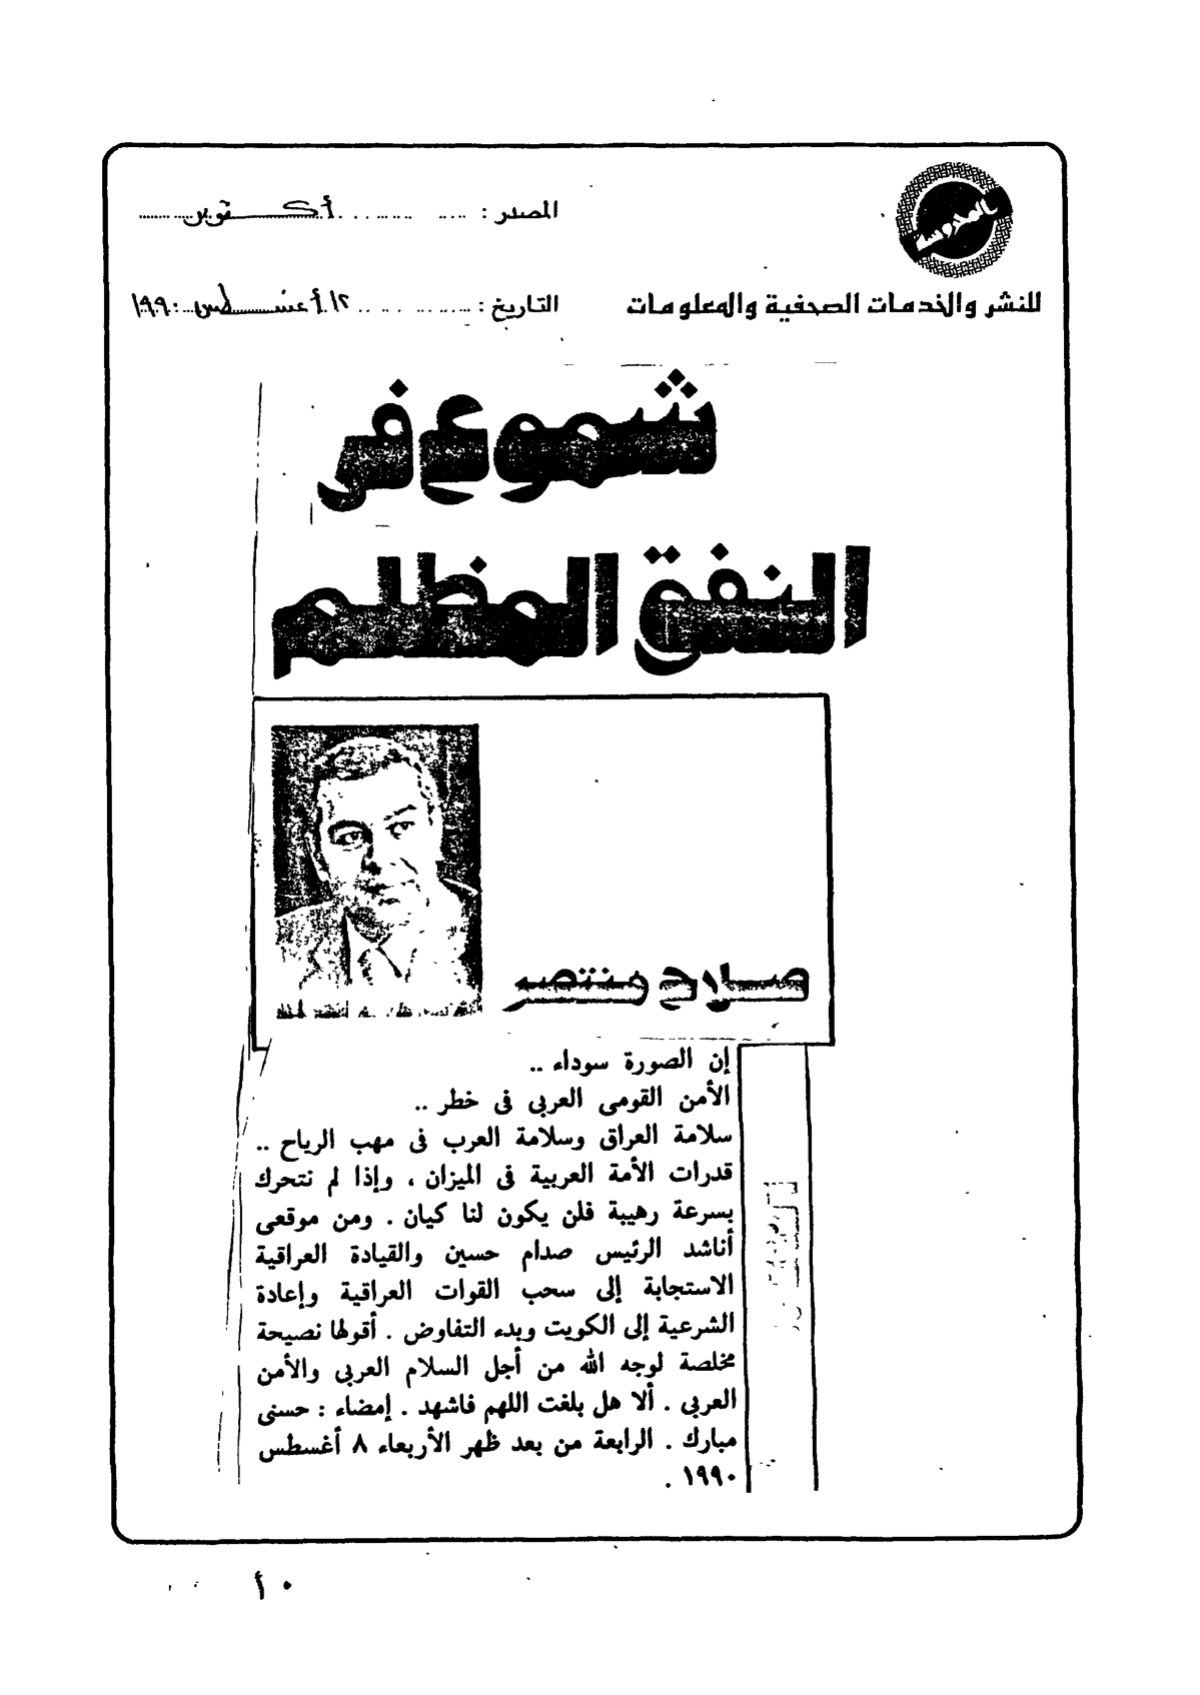 المصدر : أكتوبر
للنشر والخدمات الصحفية والمعلومات
التاريخ : ١٢ أغسطس ١٩٩٠
شموع في
النفق المظلم
صلاح منتصر
إن الصورة سوداء ..
الأمن القومى العربى فى خطر ..
سلامة العراق وسلامة العرب فى مهب الرياح ..
قدرات الأمة العربية فى الميزان ، وإذا لم نتحرك
بسرعة رهيبة فلن يكون لنا كيان . ومن موقعى
أناشد الرئيس صدام حسين والقيادة العراقية
الاستجابة إلى سحب القوات العراقية وإعادة
الشرعية إلى الكويت وبدء التفاوض . أقولها نصيحة
مخلصة لوجه الله من أجل السلام العربى والأمن
العربى . ألا هل بلغت اللهم فاشهد . إمضاء : حسنى
مبارك . الرابعة من بعد ظهر الأربعاء ٨ أغسطس
١٩٩٠ .